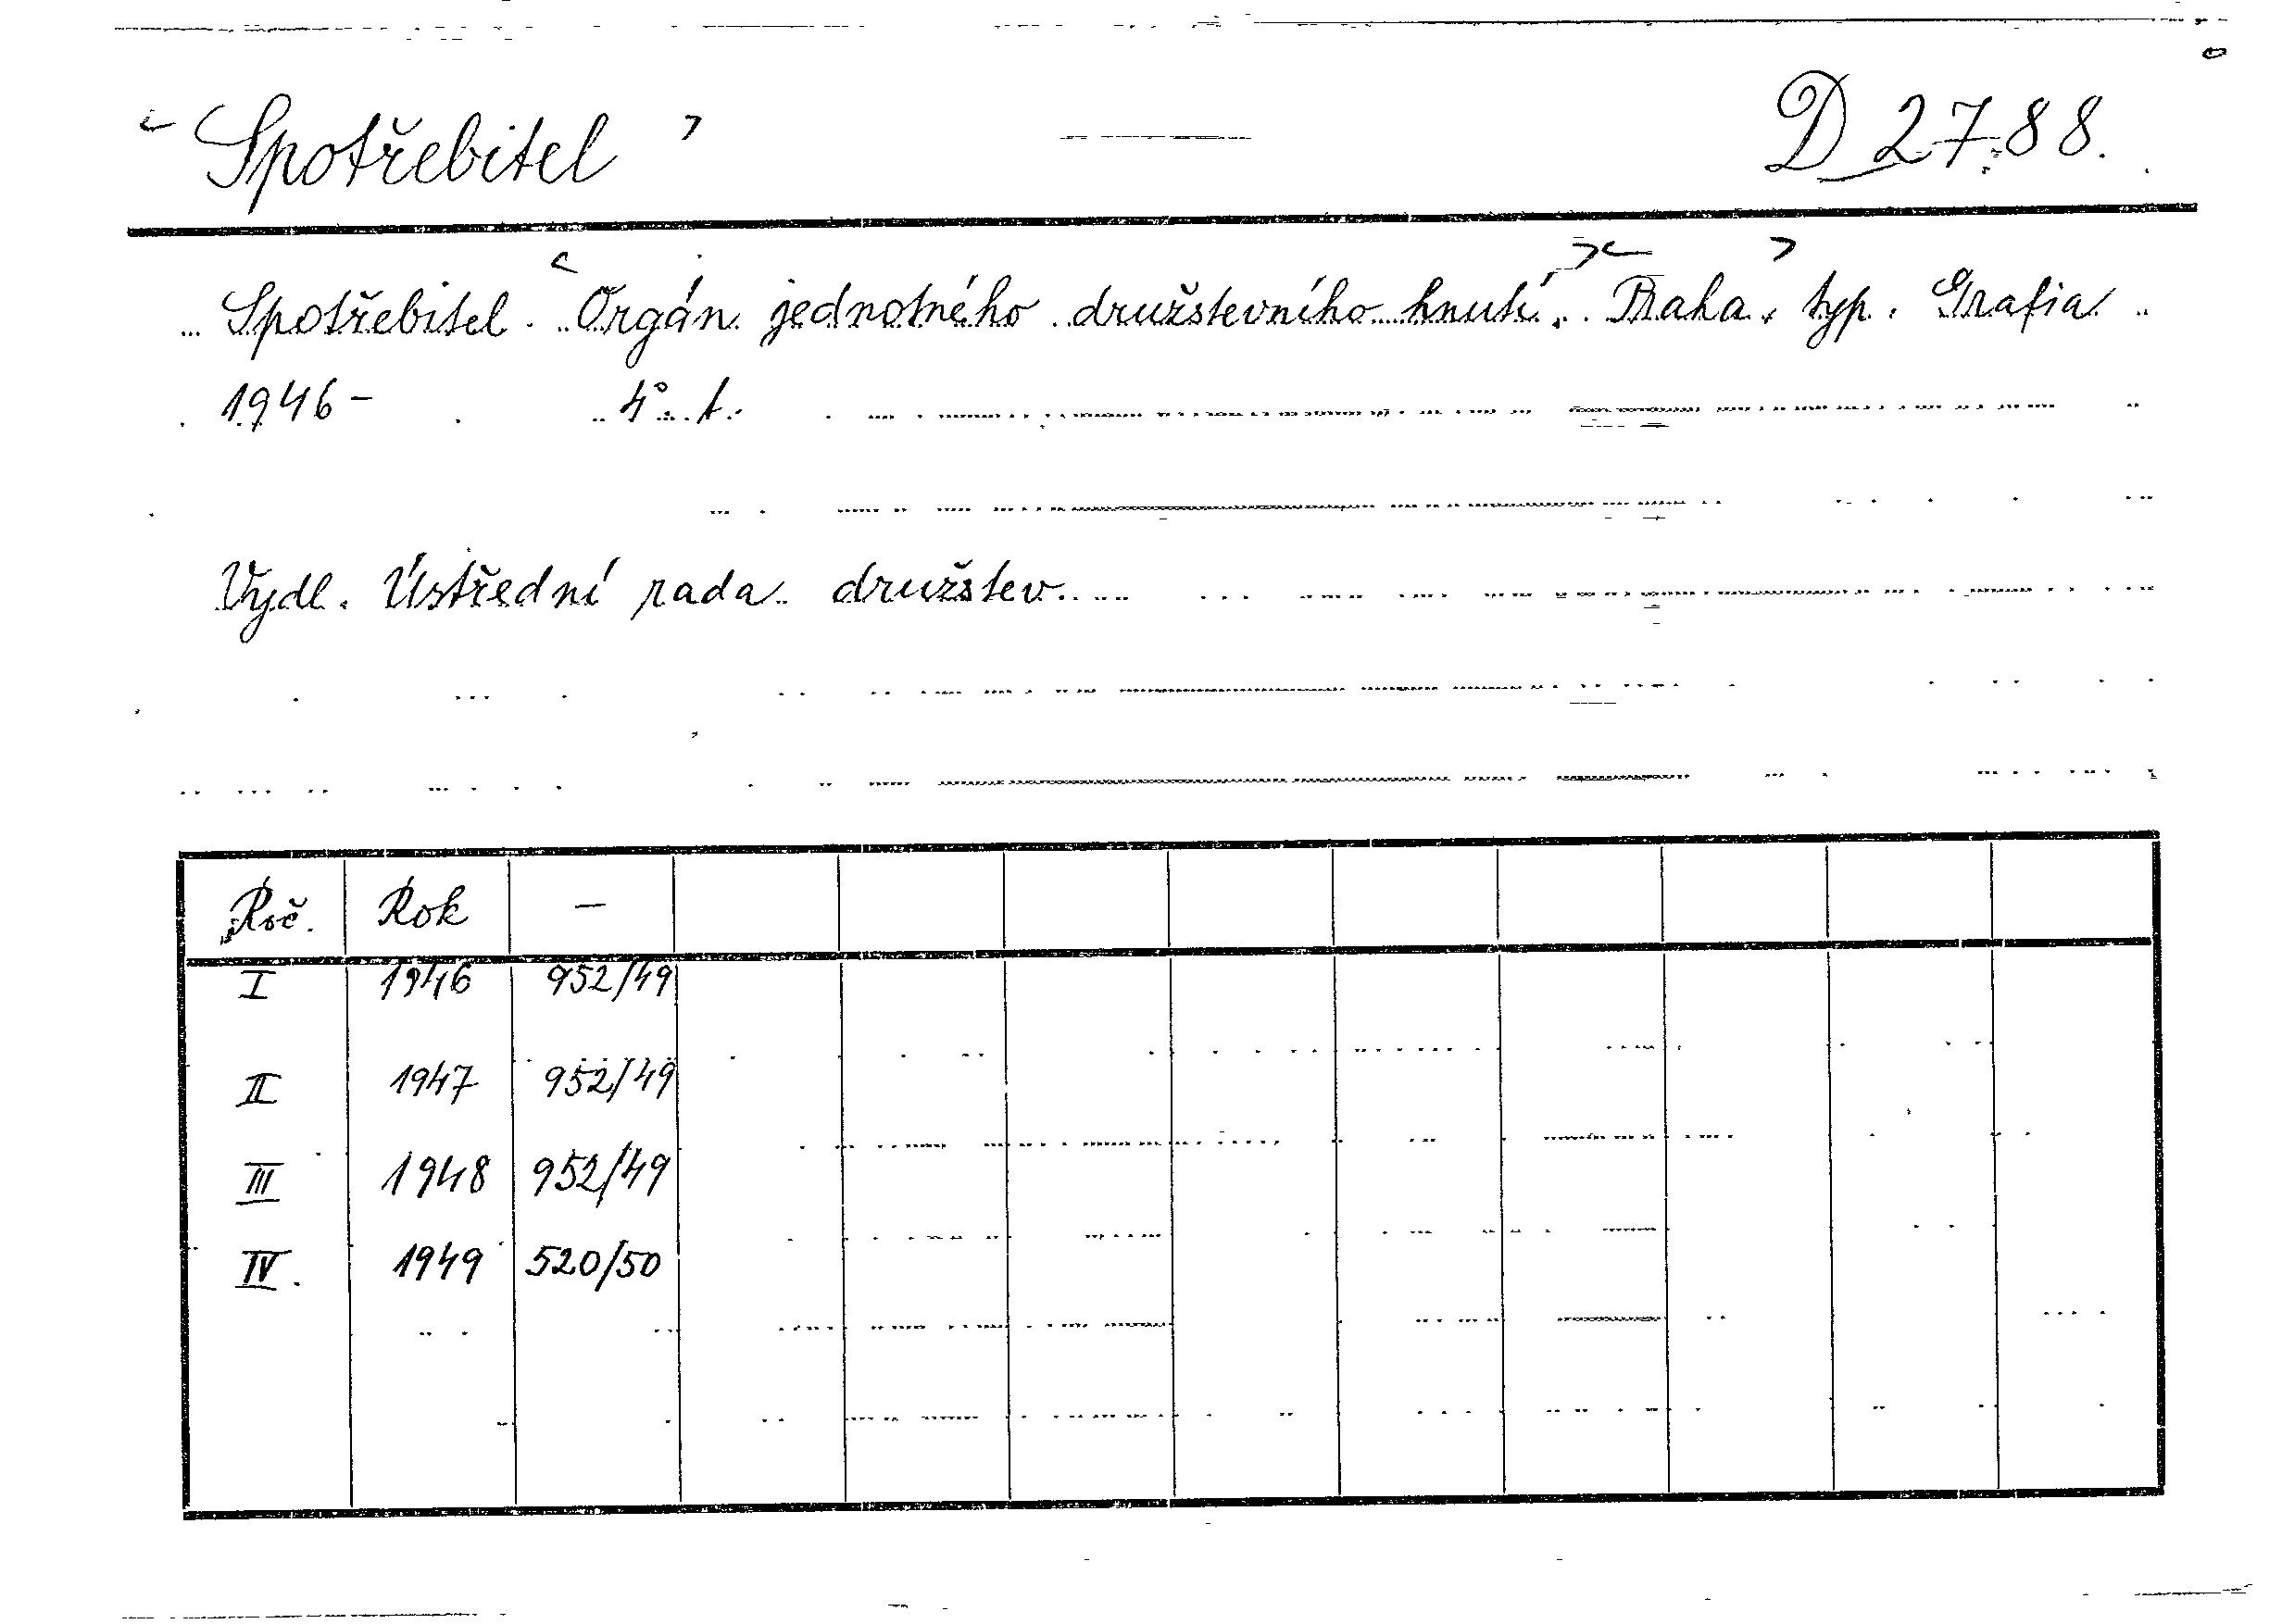 Spotřebitel D 2788.
Spotřebitel. Orgán jednotného družstevního hnutí. Praha, typ. Grafia
1946- 4°. t.
Vydl. Ústřední rada družstev.
Roč. Rok –
I 1946 952/49
II 1947 952/49
III 1948 952/49
IV. 1949 520/50